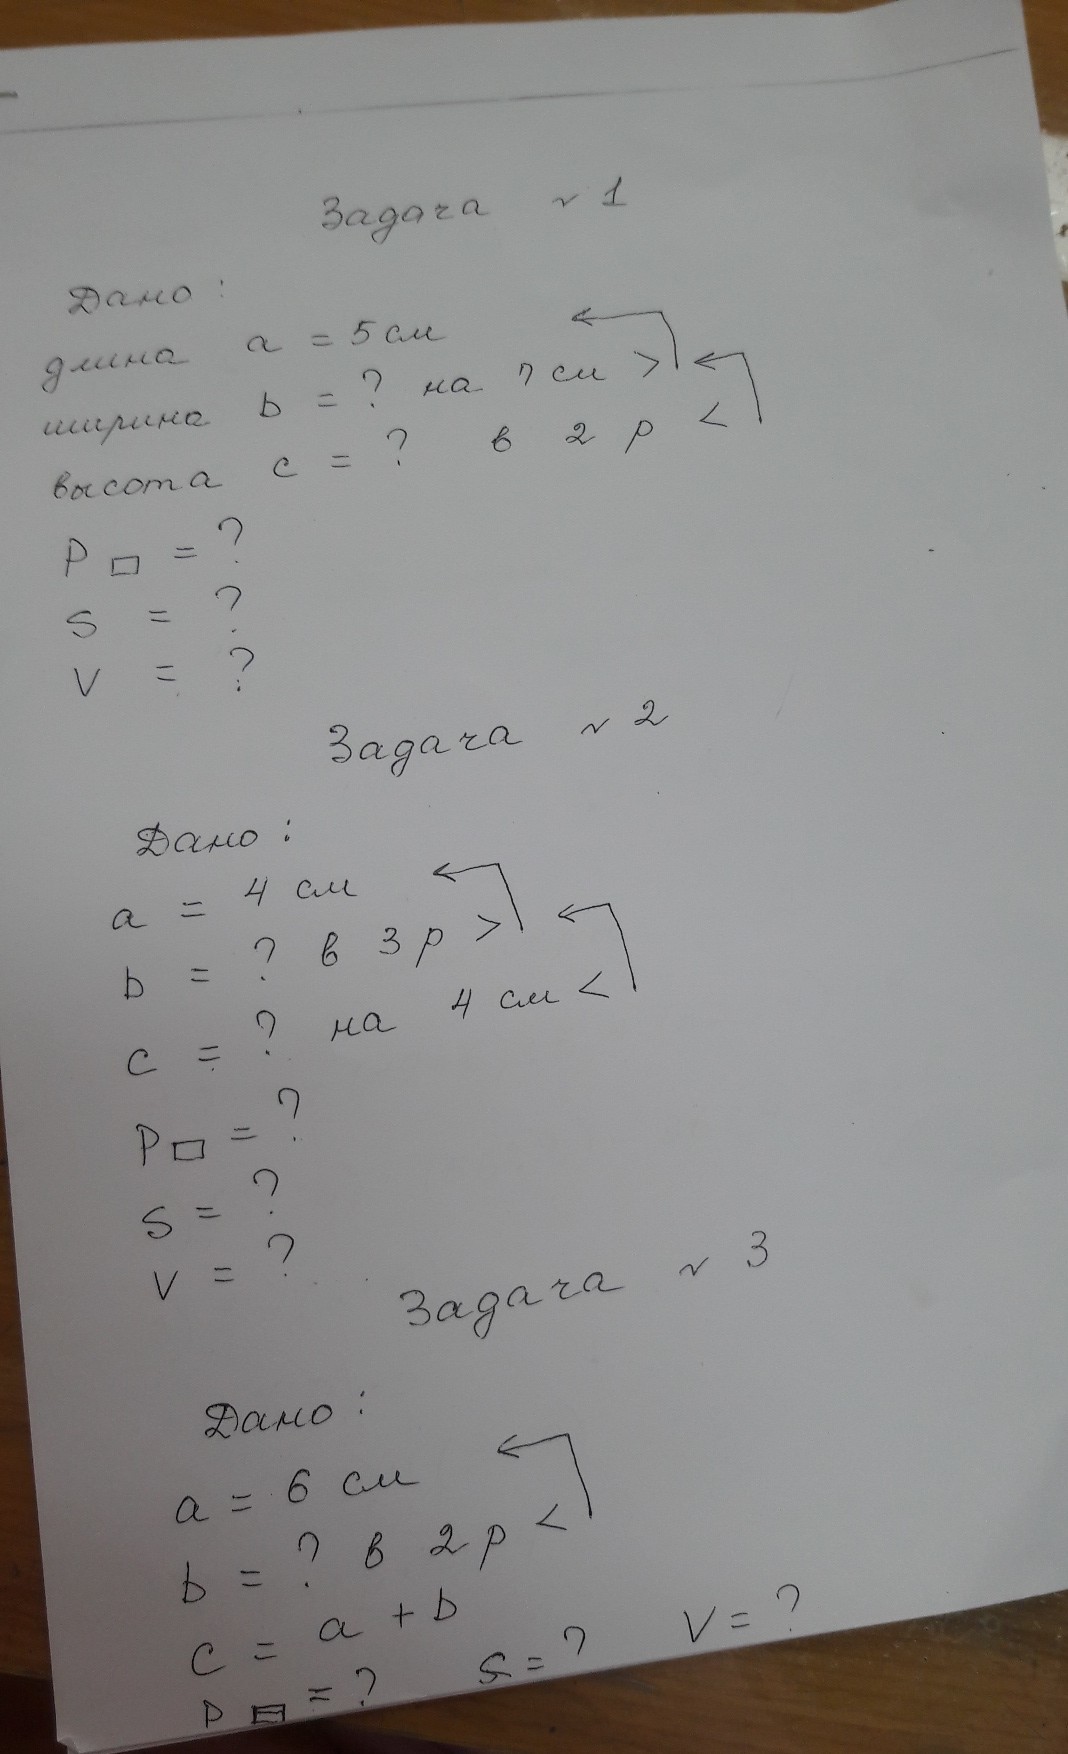 Задача № 1
Дано :
длина a = 5 см
ширина b = ? на 7 см >
высота c = ? в 2 р <
P □ = ?
S = ?
V = ?
Задача № 2
Дано :
a = 4 см
b = ? в 3 р >
c = ? на 4 см <
P □ = ?
S = ?
V = ?
Задача № 3
Дано :
a = 6 см
b = ? в 2 р <
c = a + b
P □ = ? S = ? V = ?